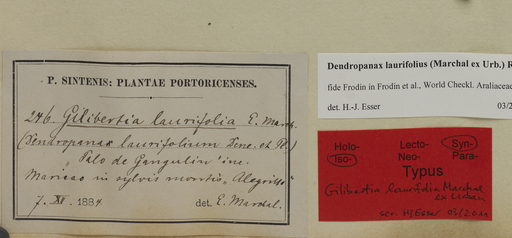 P. SINTENIS: PLANTAE PORTORICENSES.
246. Gilibertia laurifolia E. March.
(Dendropanax laurifolium Dene. et Pl.)
Palo de Gangulin in
Maricao in sylvis montis "Alegrillo"
7. XI. 1884 det. E. Marchal.
Dendropanax laurifolius (Marchal ex Urb.) R
fide Frodin in Frodin et al., World Checkl. Araliaceae
det. H.-J. Esser 03/2
Holo- Lecto- Syn-
Iso- Neo- Para-
Typus
Gilibertia laurifolia Marchal
ex Urban
scr. HJEsser 03/2011